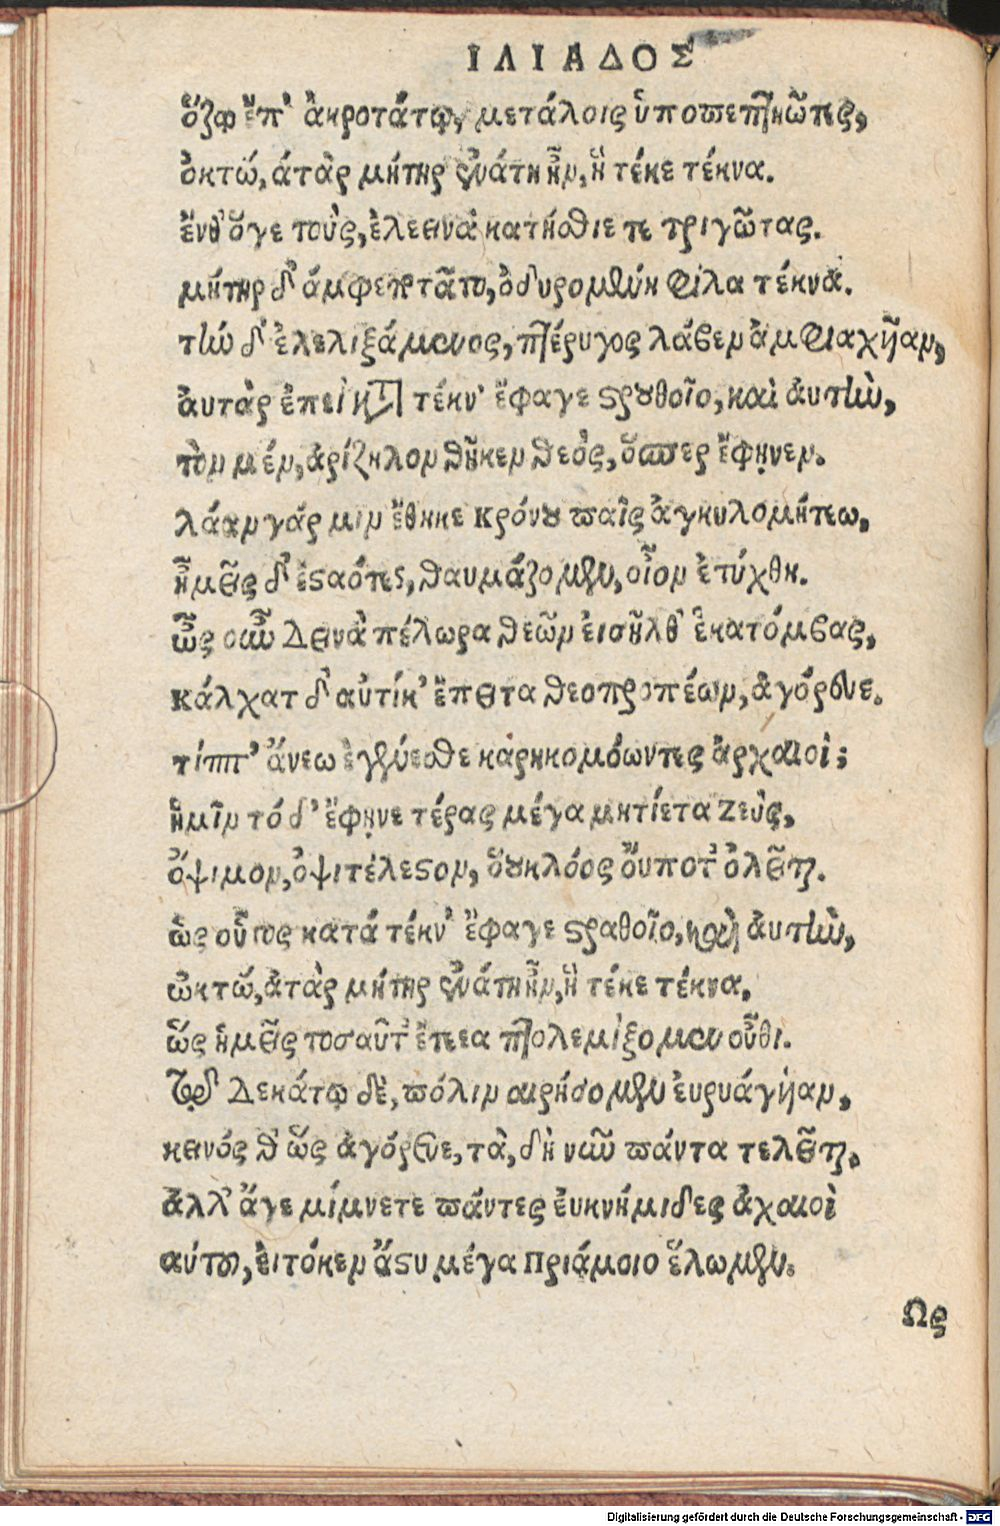 ΙΛΙΑΔΟΣ
ὄζῳ ἔπ' ἀκροτάτῳ, μετάλοις ὑποπεπτηκῶτες,
ὀκτώ, ἀτὰρ μήτηρ ἐνάτη ἦν, ἣ τέκε τέκνα.
ἔνθ' ὅγε τοὺς, ἐλεεινὰ κατήσθιε τετριγῶτας.
μήτηρ δ' ἀμφεποτᾶτο, ὀδυρομένη φίλα τέκνα.
τὴν δ' ἐλελιξάμενος, πτέρυγος λάβεν ἀμφιαχῆαν,
ἀυτὰρ ἐπεὶ κατὰ τέκν' ἔφαγε στρουθοῖο, καὶ ἀυτὴν,
τὸν μέν, ἀρίζηλον θῆκεν θεὸς, ὅσπερ ἔφηνεν.
λάαν γάρ μιν ἔθηκε Κρόνου παῖς ἀγκυλομήτεω,
ἡμεῖς δ' ἑσταότες, θαυμάζομεν, οἷον ἐτύχθη.
ὧς οὖν δεινὰ πέλωρα θεῶν εἰσῆλθ' ἑκατόμβας,
Κάλχατ δ' αὐτίκ' ἔπειτα θεοπροπέων, ἀγόρευε.
τίππ' ἄνεω ἐγένεσθε καρηκομόωντες ἀρχαιοὶ;
ἡμῖν τόδ' ἔφηνε τέρας μέγα μητίετα Ζεὺς,
ὄψιμον, ὀψιτέλεστον, ὅου κλόος ὄυποτ' ὀλεῖται.
ὡς οὗτος κατά τέκν' ἔφαγε στραθοῖο, καὶ ἀυτὴν,
ὠκτώ, ἀτὰρ μήτηρ ἐνάτη ἦν, ἣ τέκε τέκνα,
ὥς ἡμεῖς τοσαῦτ' ἔτεεα πτολεμίξομεν οὖθι.
τῷ δεκάτῳ δὲ, πόλιν αιρήσομεν ἐυρυάγυιαν,
κεινός θ' ὥς ἀγόρευε, τὰ, δὴ νῦν πάντα τελεῖται.
ἀλλ' ἄγε μίμνετε πάντες ἐυκνήμιδες ἀχαιοὶ
αύτου, ἐιτόκεν ἄστυ μέγα Πριάμοιο ἕλωμεν.
Ὡς
Digitalisierung gefördert durch die Deutsche Forschungsgemeinschaft - DFG